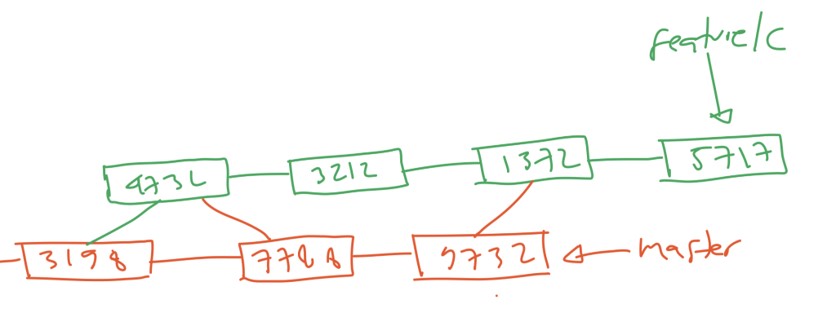 feature/c
4732
3212
1372
5717
3198
7788
9732
master